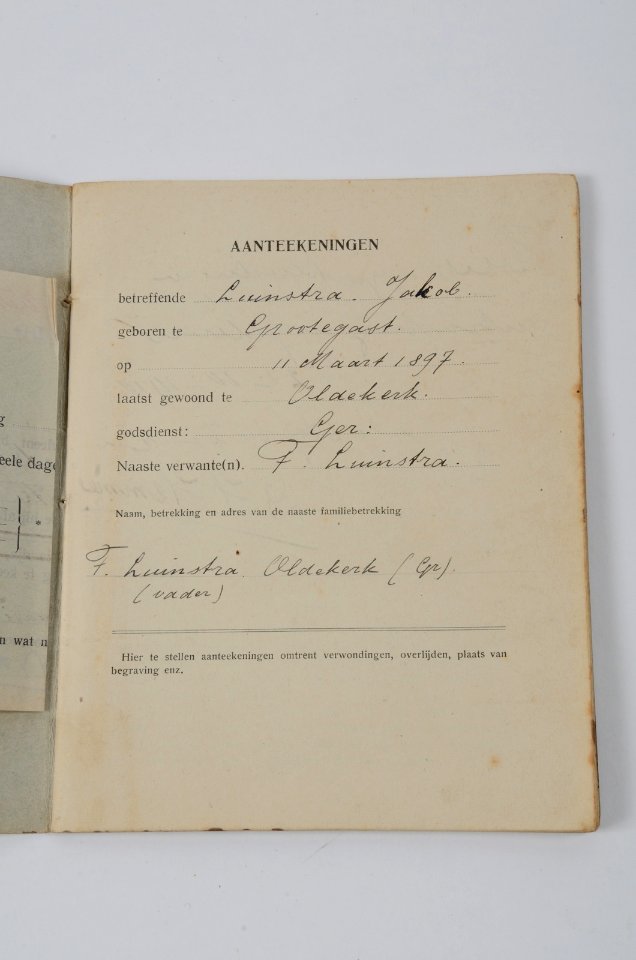 g
eele dage
*
n wat n
AANTEEKENINGEN
betreffende Luinstra. Jakob.
geboren te Grootegast.
op 11 Maart 1897.
laatst gewoond te Oldekerk.
godsdienst: Ger:
Naaste verwante(n). F. Luinstra.
Naam, betrekking en adres van de naaste familiebetrekking
F. Luinstra. Oldekerk (Gr).
(vader)
Hier te stellen aanteekeningen omtrent verwondingen, overlijden, plaats van
begraving enz.